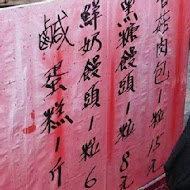 菇肉包1粒15元
黑糖饅頭1粒8元
鮮奶饅頭1粒6
鹹蛋糕1斤